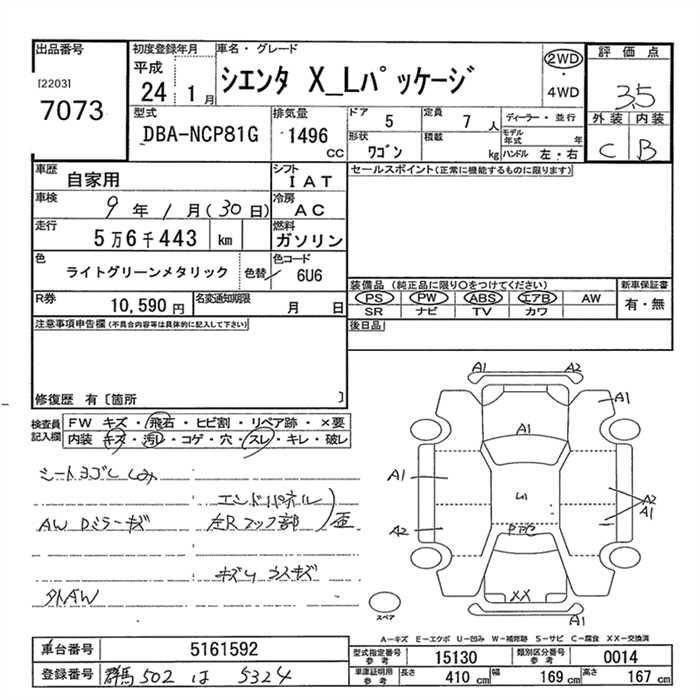 出品番号
[2203]
7073
初度登録年月
平成
24 1月
車名・グレード
シエンタ X_Lパッケージ
2WD
・
4WD
評価点
3.5
外装 内装
C B
型式
DBA-NCP81G
排気量
1496
CC
ドア
5
定員
7人
ディーラー・並行
形状
ワゴン
積載
kg
モデル年式 年
ハンドル 左・右
車歴
自家用
シフト
IAT
車検
9年1月(30日)
冷房
AC
走行
5万6千443 km
燃料
ガソリン
色
ライトグリーンメタリック
色替
色コード
6U6
R券
10,590円
名変通知期限
月 日
セールスポイント(正常に機能するものに限ります)
装備品 (純正品に限り○をつけてください)
PS PW ABS エアB AW
SR ナビ TV カワ
新車保証書
有・無
後日品
注意事項申告欄 (不具合内容等は具体的に記入して下さい)
修復歴 有〔箇所 〕
検査員記入欄
FW キズ・飛石・ヒビ割・リペア跡・×要
内装 キズ・汚れ・コゲ・穴・スレ・キレ・破レ
シートヨゴレ しみ
エンドパネル
AW Dミラーキズ
左Rフック部
歪
外AW
A1 A2
A1
A1
A1
A2
A2
A1
XX
A1
スペア
A-キズ E-エクボ U-凹み W-補修跡 S-サビ C-腐食 XX-交換済
車台番号
5161592
登録番号
群馬502 は 5324
型式指定番号
参考
15130
類別区分番号
参考
0014
車庫証明用
参考
長さ
410 cm
幅
169 cm
高さ
167 cm